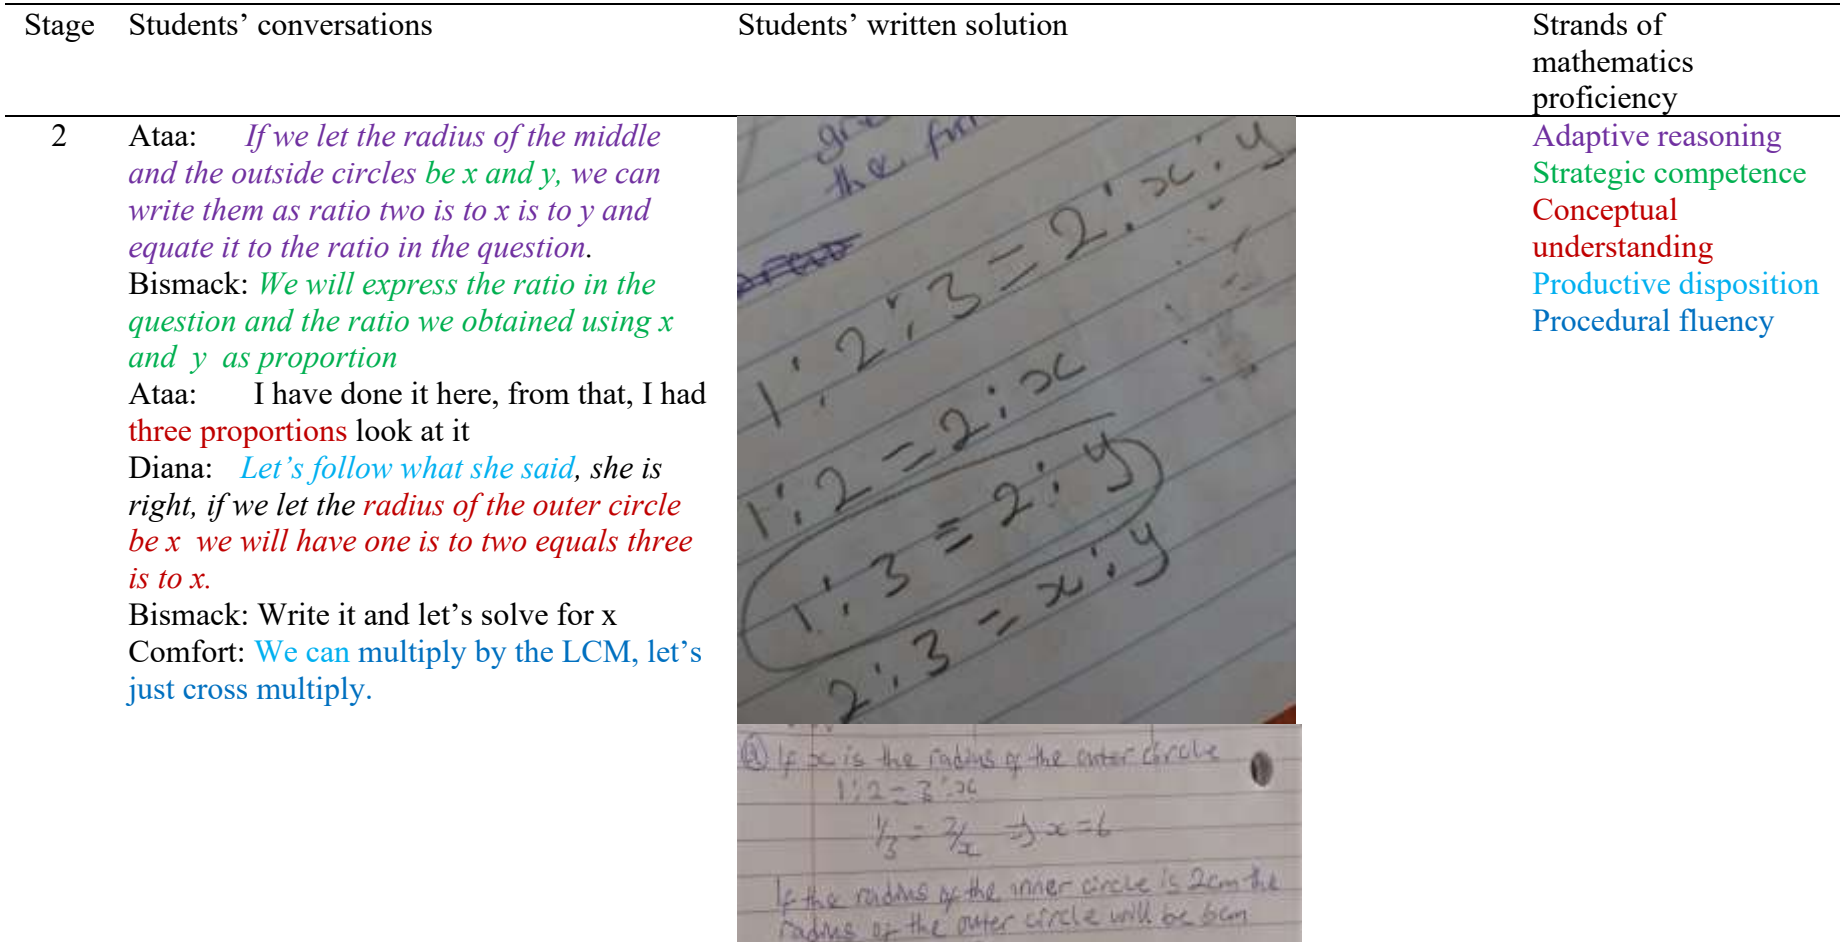 Stage Students’ conversations Students’ written solution Strands of
mathematics
proficiency
2 Ataa: If we let the radius of the middle
and the outside circles be x and y, we can
write them as ratio two is to x is to y and
equate it to the ratio in the question.
Bismack: We will express the ratio in the
question and the ratio we obtained using x
and y as proportion
Ataa: I have done it here, from that, I had
three proportions look at it
Diana: Let’s follow what she said, she is
right, if we let the radius of the outer circle
be x we will have one is to two equals three
is to x.
Bismack: Write it and let’s solve for x
Comfort: We can multiply by the LCM, let’s
just cross multiply.
the
1:2:3 = 2:x:y
1:2 = 2:x
1:3 = 2:y
2:3 = x:y
If x is the radius of the outer circle
1:2 = 3:x
1/3 = 2/x ⇒ x = 6
If the radius of the inner circle is 2cm the
radius of the outer circle will be 6cm
Adaptive reasoning
Strategic competence
Conceptual
understanding
Productive disposition
Procedural fluency